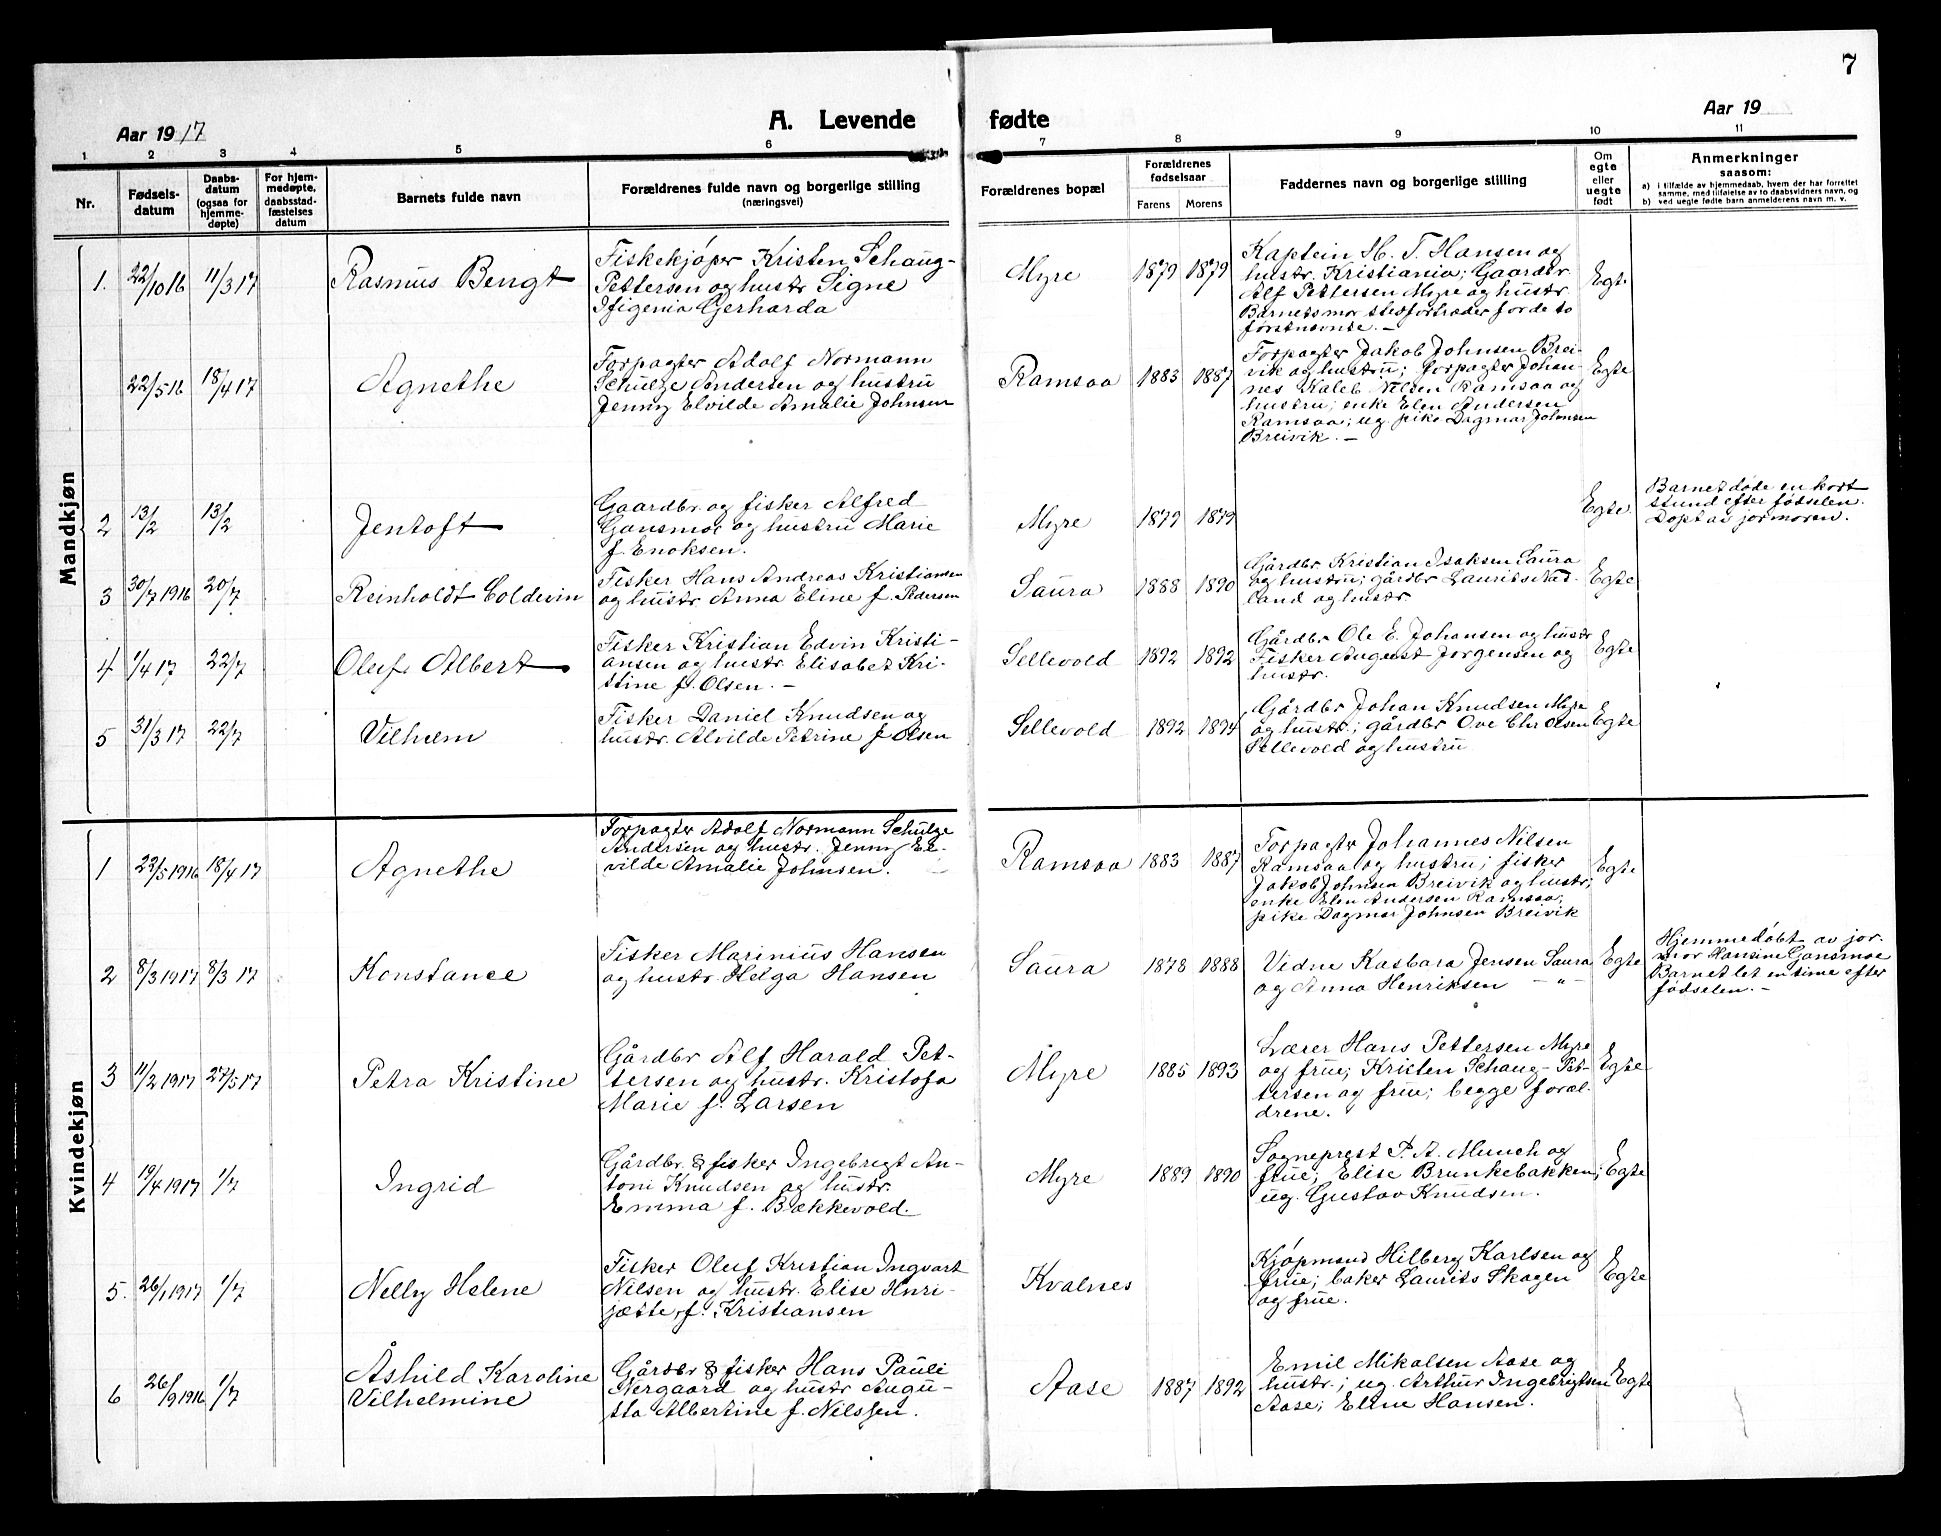 7
Aar 1917
A. Levende
fødte
Aar 19
1 2 3 4 5 6 7 8 9 10 11
Nr.
Fødsels-
datum
Daabs-
datum
(ogsaa for
hjemme-
døpte)
For hjem-
medøpte,
daabsstad-
fæstelses
datum
Barnets fulde navn
Forældrenes fulde navn og borgerlige stilling
(næringsvei)
Forældrenes bopæl
Forældrenes
fødselsaar
Farens Morens
Faddernes navn og borgerlige stilling
Om
egte
eller
uegte
født
Anmerkninger
saasom:
a) i tilfælde av hjemmedaab, hvem der har forrettet
samme, med tilføielse av to daabsvidners navn, og
b) ved uegte fødte barn anmelderens navn m. v.
Mandkjøn
1. 22/10 16 11/3 17
Rasmus Bengt
Fiskekjøper Kristen Schaug-
Pettersen og hustr. Signe
Ifigenia Gerharda
Myre 1879 1879
Kaptein H. T. Hansen og
hustr. Kristiania; Gaardbr.
Alf Pettersen Myre og hustr.
Barnets mor stedfortræder for de to
førstnevnte. —
Egte
22/5 16 18/4 17
Agnethe
Forpagter Adolf Normann
Schulze Andersen og hustru
Jenny Elvilde Amalie Johnsen
Ramsaa 1883 1887
Forpagter Jakob Johnsen Brei-
vik og hustru; forpagter Johan-
nes Kaleb Nilsen Ramsaa og
hustru; enke Elen Andersen
Ramsaa; ug. pike Dagmar Johnsen
Breivik. —
Egte
2 13/2 13/2
Jentoft
Gaardbr. og fisker Alfred
Gansmoe og hustru Marie
f. Enoksen.
Myre 1879 1879
Egte
Barnet døde en kort
stund efter fødselen.
Døpt av jormoren.
3 30/7 1916 20/7
Reinholdt Coldevin
Fisker Hans Andreas Kristiansen
og hustr. Anna Eline f. Pedersen
Saura 1888 1890
Gårdbr. Kristian Isaksen Saura
og hustru; gårdbr Laurits Nad-
land og hustr.
Egte
4 1/4 17 22/7
Oluf Albert
Fisker Kristian Edvin Kristi-
ansen og hustr. Elisabet Kri-
stine f. Olsen. —
Sellevold 1892 1892
Gårdbr Ole E. Johansen og hustr
Fisker August Jørgensen og
hustr.
Egte
5 31/3 17 22/7
Vilhelm
Fisker Daniel Knudsen og
hustr. Alvilde Petrine f Olsen
Sellevold 1892 1894
Gårdbr Johan Knudsen Myre
og hustr.; gårdbr Ove Chr Olsen
Sellevold og hustru
Egte
Kvindekjøn
1 22/5 1916 18/4 17
Agnethe
Forpagter Adolf Normann Schulze
Andersen og hustr. Jenny El-
vilde Amalie Johnsen. —
Ramsaa 1883 1887
Forpagter Johannes Nilsen
Ramsaa og hustru; fisker
Jakob Johnsen Breivik og hustr;
enke Elen Andersen Ramsaa;
pike Dagmar Johnsen Breivik
Egte
2 8/3 1917 8/3 17
Konstance
Fisker Marinius Hansen
og hustr. Helga Hansen
Saura 1878 1888
Vidne Kasbara Jensen Saura
og Anna Henriksen — " —
Egte
Hjemmedøbt av jor-
mor Hansine Gansmoe
Barnet let en time efter
fødselen. —
3 11/2 1917 27/5 17
Petra Kristine
Gårdbr Alf Harald Pet-
tersen og hustr. Kristofa
Marie f. Larsen
Myre 1885 1893
Lærer Hans Pettersen Myre
og frue; Kristen Schaug-Pet-
tersen og frue; begge foræl-
drene.
Egte
4 19/4 1917 1/7
Ingrid
Gårdbr. & fisker Ingebrigt An-
toni Knudsen og hustr.
Emma f. Bækkevold.
Myre 1889 1890
Sogneprest P. A. Munch og
frue; Elise Brunkebakken;
ug. Gustav Knudsen.
Egte
5. 26/1 1917 1/7
Nelly Helene
Fisker Oluf Kristian Ingvart
Nilsen og hustr. Elise Hnri-
jette f. Kristiansen
Kvalnes
Kjøpmand Hilberg Karlsen og
frue; baker Laurits Skogen
og frue.
Egte
6 26/9 1916 1/7
Åshild Karoline
Vilhelmine
Gårdbr & fisker Hans Pauli
Nergaard og hustr Augu-
sta Albertine f. Nilssen.
Aase 1887 1892
Emil Mikalsen Aase og
hustr.; ug. Arthur Ingebrigtsen
Aase; Eline Hansen.
Egte